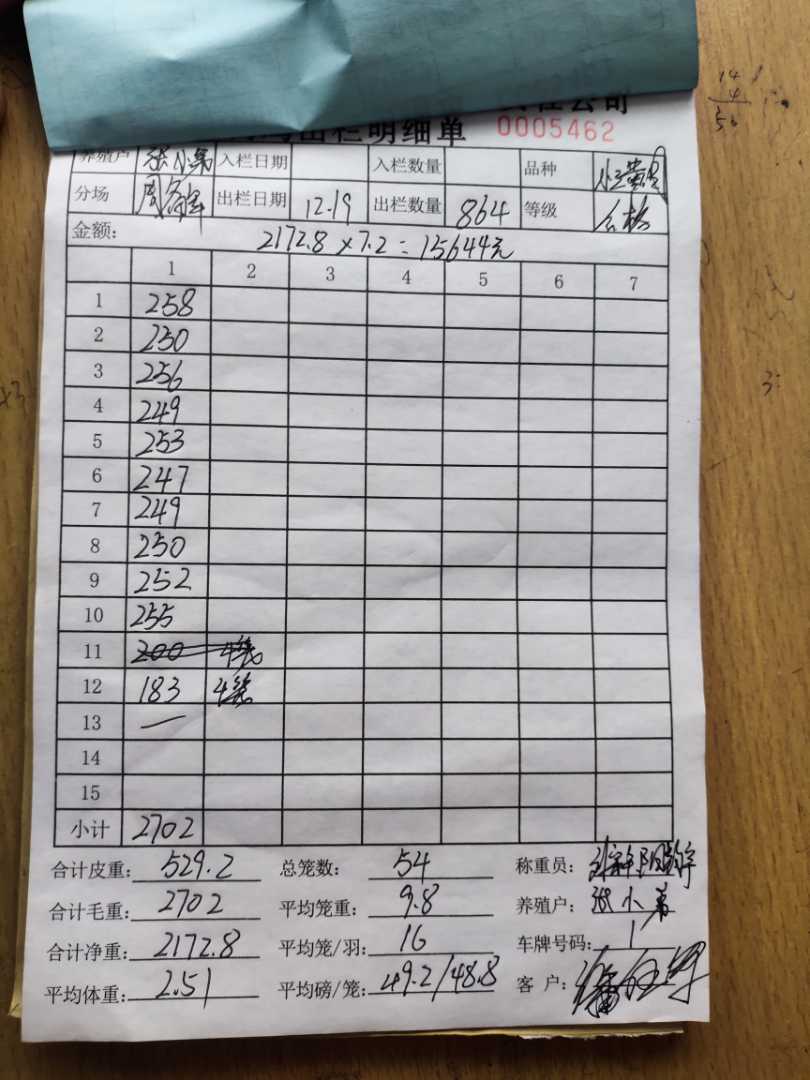 出栏明细单 0005462
养殖户 张小弟 入栏日期 入栏数量 品种
分场 出栏日期 12.19 出栏数量 864 等级 合格
金额: 2172.8×7.2=15644元
1 2 3 4 5 6 7
1 258
2 250
3 256
4 249
5 253
6 247
7 249
8 250
9 252
10 255
11 200 4笼
12 183 4笼
13 —
14
15
小计 2702
合计皮重: 529.2 总笼数: 54 称重员:
合计毛重: 2702 平均笼重: 9.8 养殖户: 张小弟
合计净重: 2172.8 平均笼/羽: 16 车牌号码: 1
平均体重: 2.51 平均磅/笼: 49.2/48.8 客 户:
14
4
56